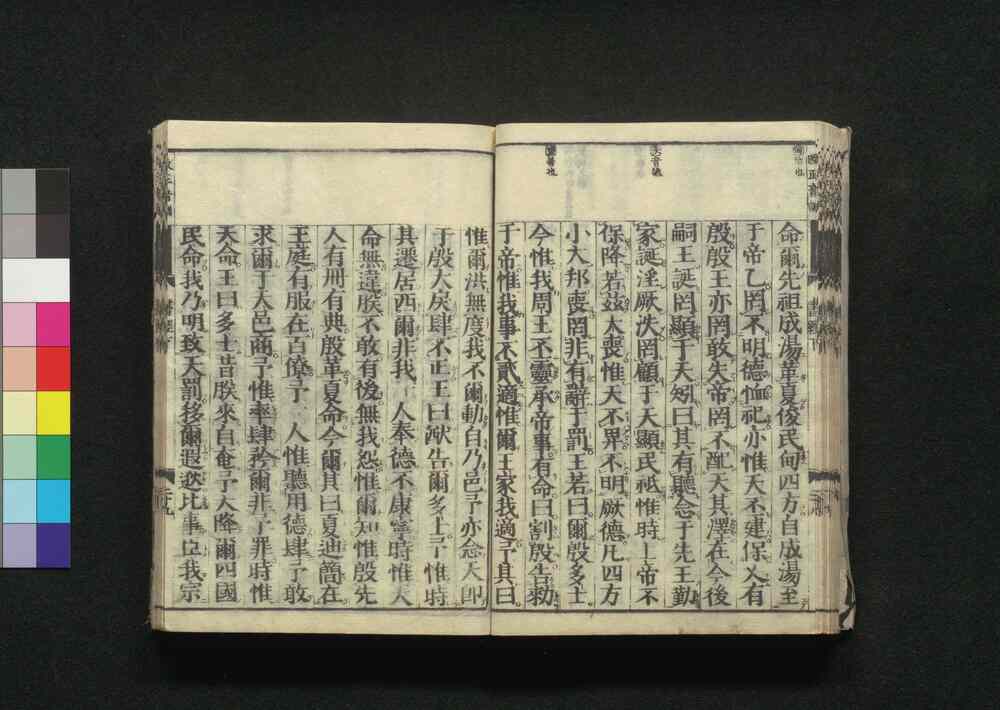 命爾先祖成湯革夏俊民甸四方自成湯至
于帝乙罔不明德恤祀亦惟天丕建保乂有
殷殷王亦罔敢失帝罔不配天其澤在今後
嗣王誕罔顯于天矧曰其有聽念于先王勤
家誕淫厥泆罔顧于天顯民祗惟時上帝不
保降若茲大喪惟天不畀不明厥德凡四方
小大邦喪罔非有辭于罰王若曰爾殷多士
今惟我周王丕靈承帝事有命曰割殷告勑
于帝惟我事不貳適惟爾王家我適予其曰
惟爾洪無度我不爾動自乃邑予亦念天卽
于殷大戾肆不正王曰猷告爾多士予惟時
其遷居西爾非我一人奉德不康寧時惟天
命無違朕不敢有後無我怨惟爾知惟殷先
人有冊有典殷革夏命今爾其曰夏迪簡在
王庭有服在百僚予一人惟聽用德肆予敢
求爾于天邑商予惟率肆矜爾非予罪時惟
天命王曰多士昔朕來自奄予大降爾四國
民命我乃明致天罰移爾遐逖比事臣我宗